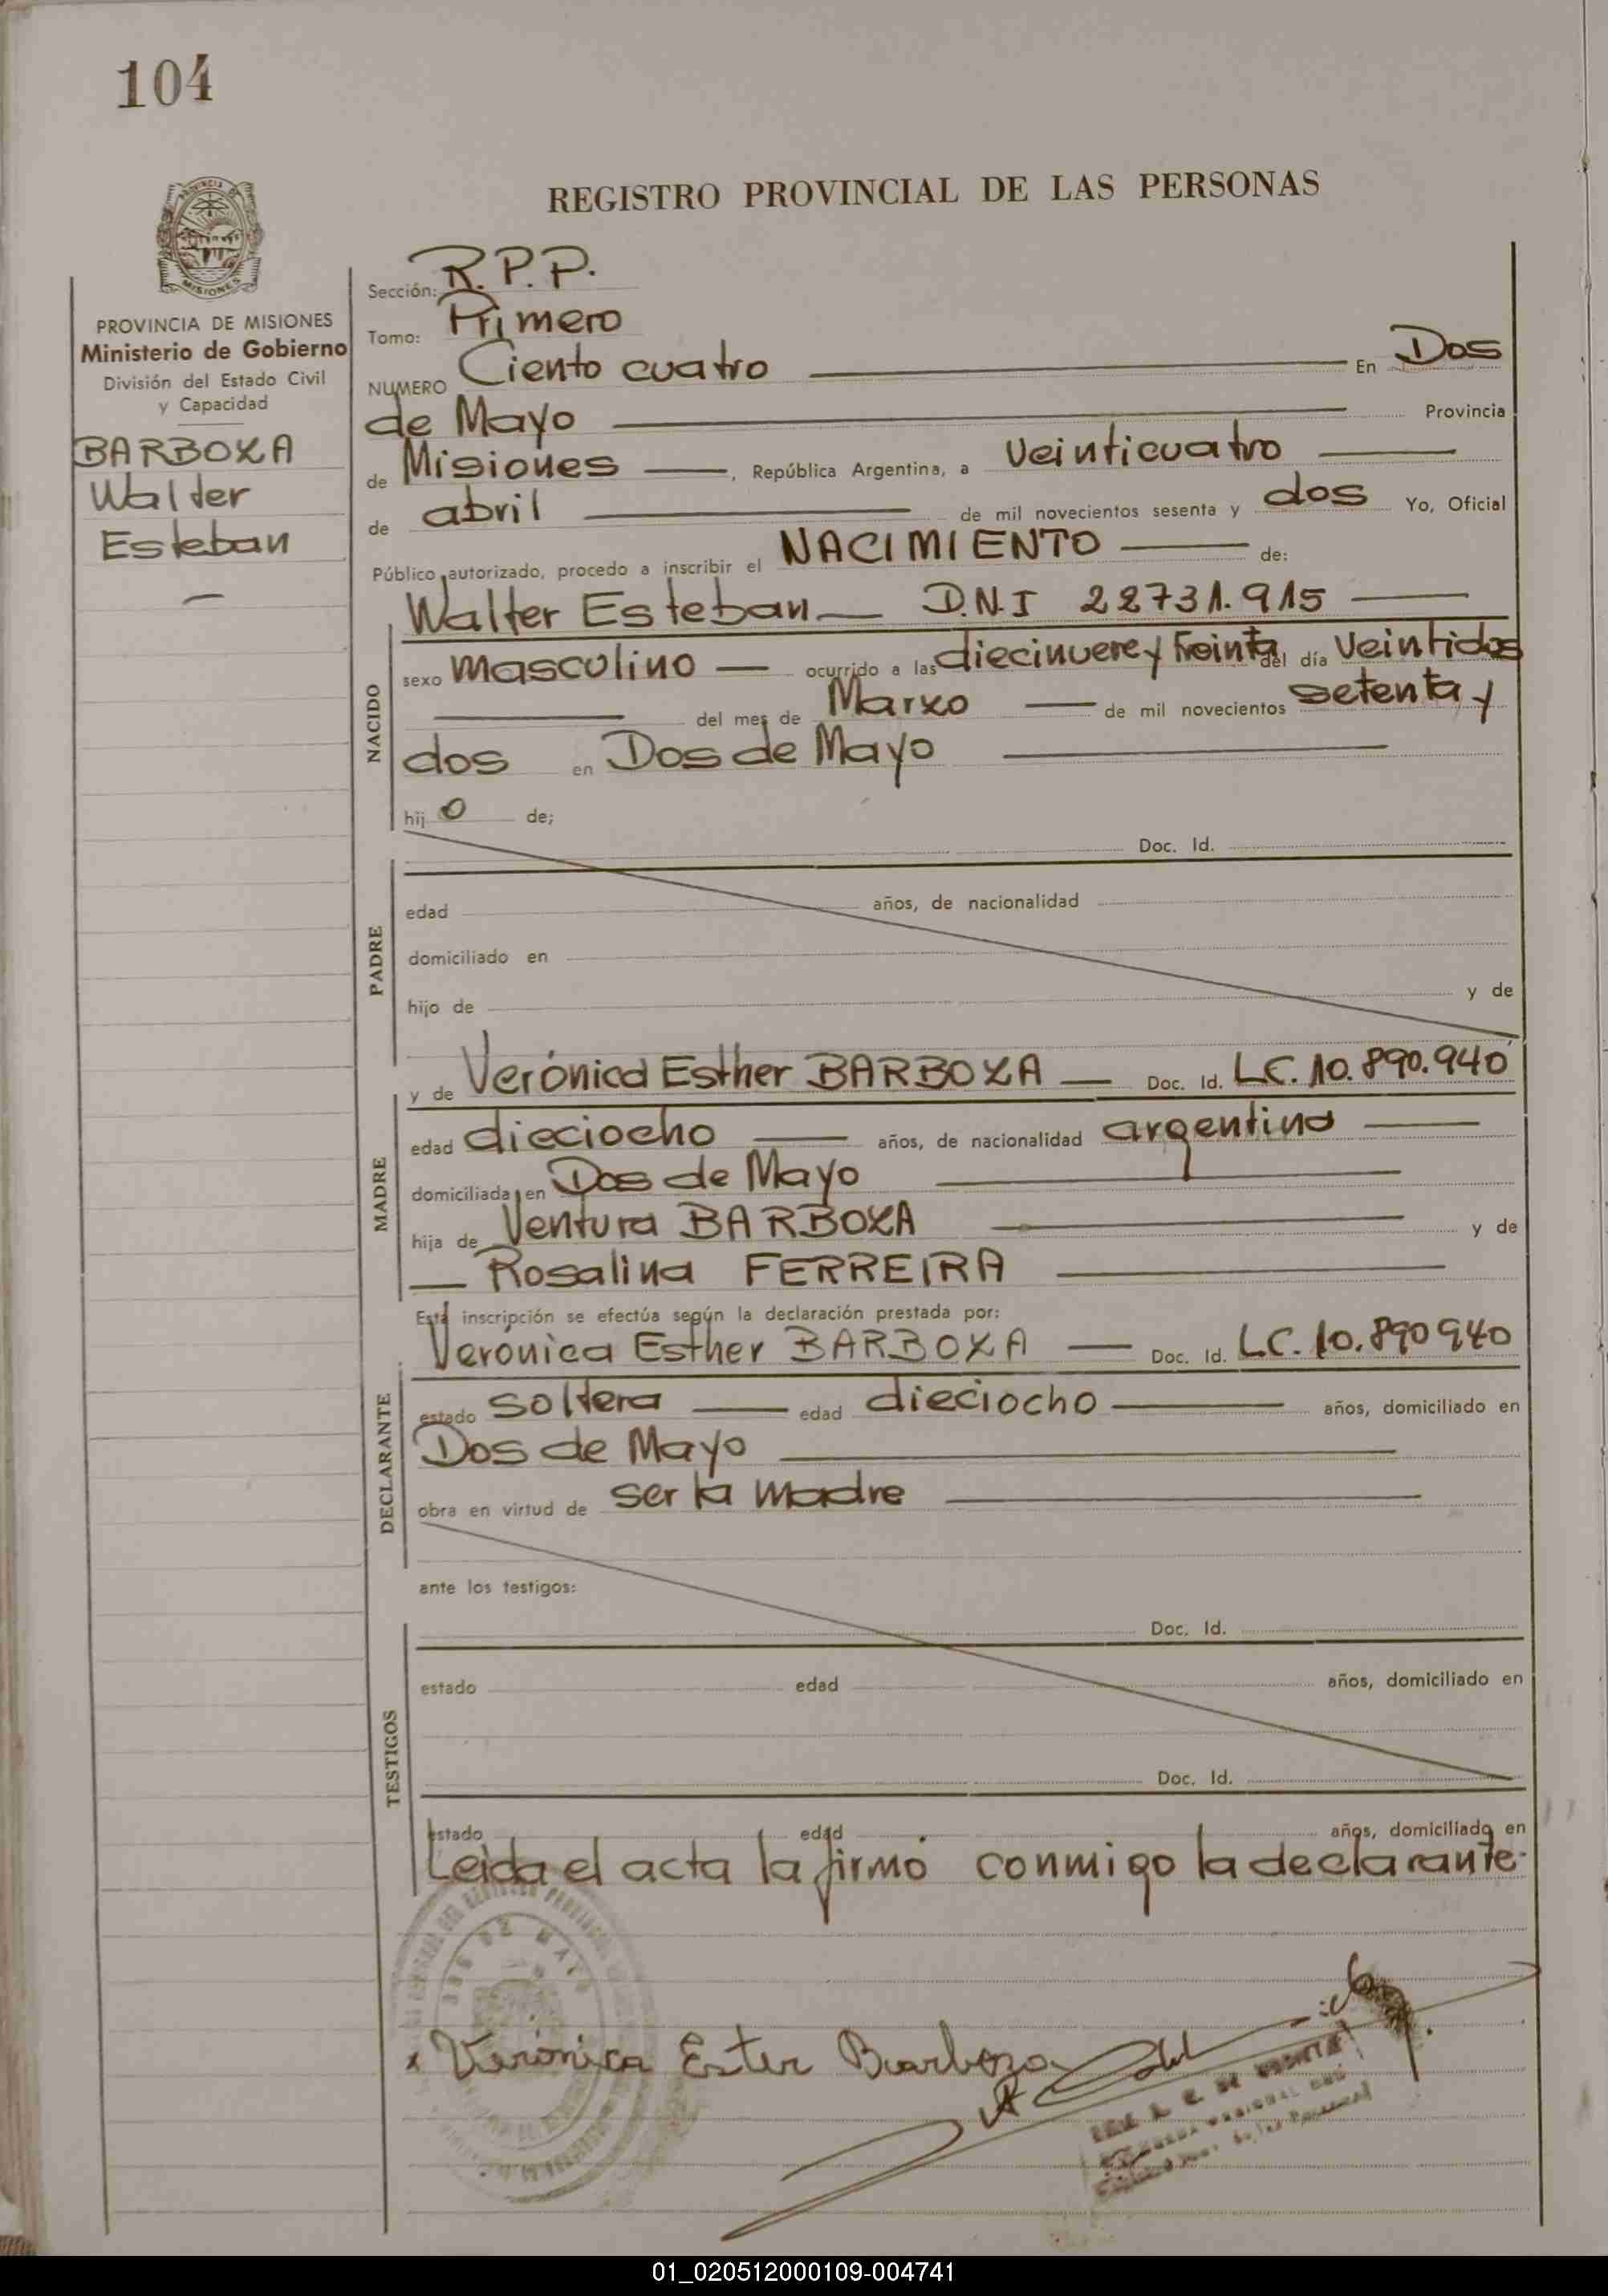 104
REGISTRO PROVINCIAL DE LAS PERSONAS
MISIONES
PROVINCIA DE MISIONES
Ministerio de Gobierno
División del Estado Civil
y Capacidad
BARBOZA
Walter
Esteban
Sección: R.P.P.
Tomo: Primero
NUMERO Ciento cuatro En Dos
de Mayo Provincia
de Misiones, República Argentina, a veinticuatro
de abril de mil novecientos sesenta y dos Yo, Oficial
Público autorizado, procedo a inscribir el NACIMIENTO de:
NACIDO
Walter Esteban — D.N.I 22731.915
sexo masculino ocurrido a las diecinueve y treinta del día veintidos
del mes de Marzo de mil novecientos setenta y
dos en Dos de Mayo
hijo de;
PADRE
Doc. Id.
edad años, de nacionalidad
domiciliado en
hijo de y de
MADRE
y de Verónica Esther BARBOZA — Doc. Id. LC. 10.890.940
edad dieciocho años, de nacionalidad argentina
domiciliada en Dos de Mayo
hija de Ventura BARBOZA y de
Rosalina FERREIRA
Esta inscripción se efectúa según la declaración prestada por:
DECLARANTE
Verónica Esther BARBOZA — Doc. Id. LC. 10.890940
estado soltera edad dieciocho años, domiciliado en
Dos de Mayo
obra en virtud de ser la madre
ante los testigos:
TESTIGOS
Doc. Id.
estado edad años, domiciliado en
Doc. Id.
estado edad años, domiciliado en
Leida el acta la firmó conmigo la declarante.
DOS DE MAYO
x Verónica Ester Barboza
01_020512000109-004741